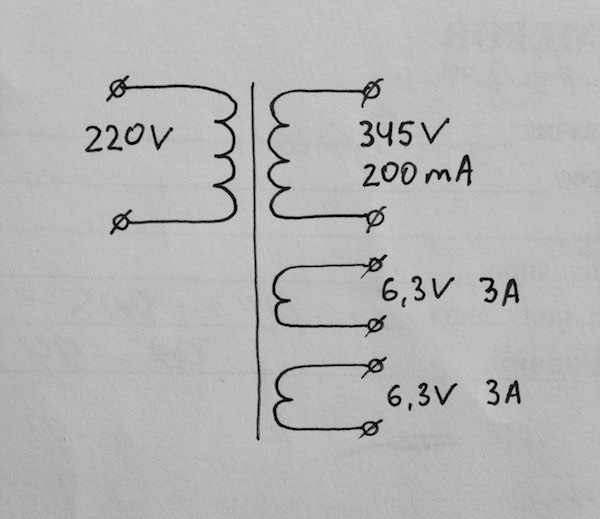 220V
345V
200mA
6,3V 3A
6,3V 3A